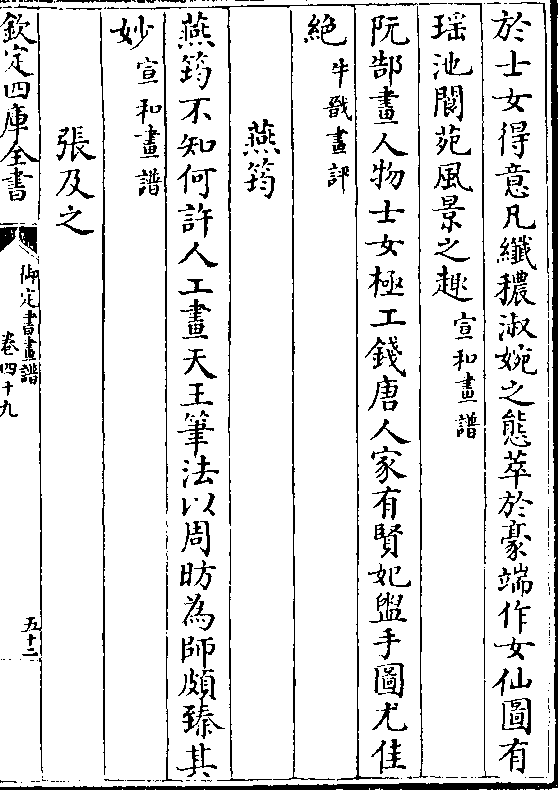 於士女得意凡纖穠淑婉之態萃於豪端作女仙圖有
瑶池閬苑風景之趣宣和畫譜
阮郜畫人物士女極工錢唐人家有賢妃盥手圖尤佳
絶牛戩畫評
燕筠
燕筠不知何許人工畫天王筆法以周昉為師頗臻其
妙宣和畫譜
張及之
欽定四庫全書
御定書畫譜
卷四十九
五十二